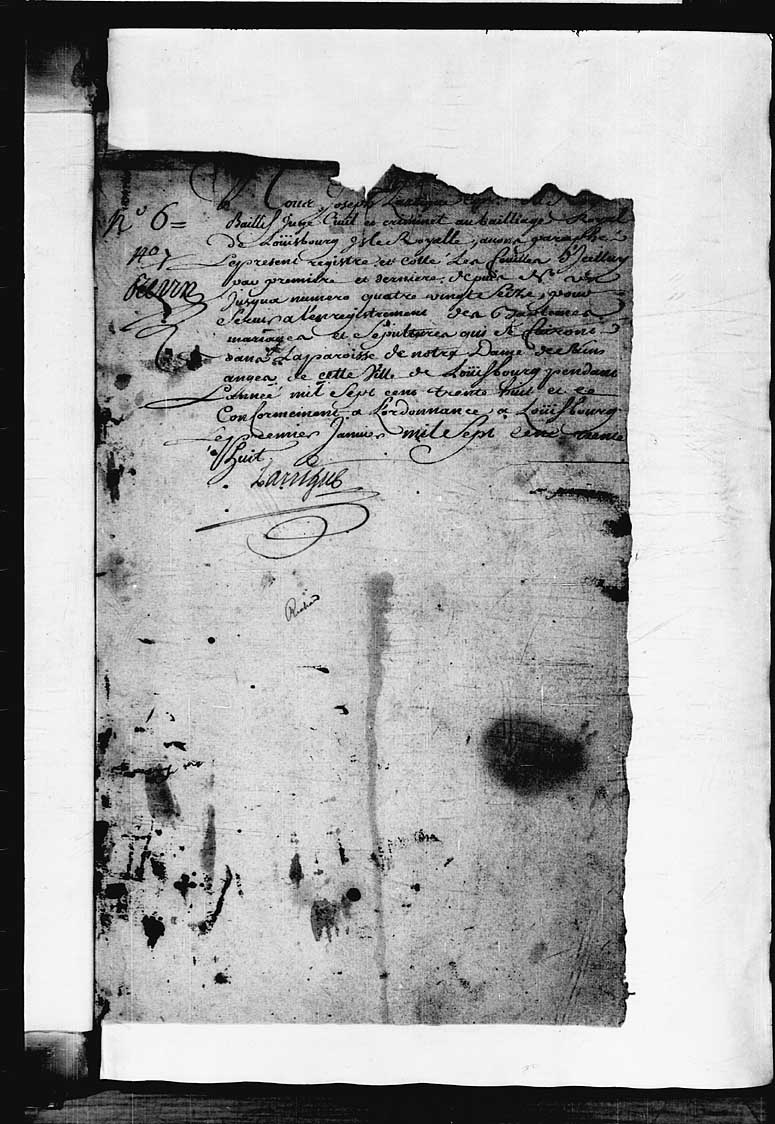 Nous Joseph Lartigue
Bailly Juge Civil et criminel au bailliage Royal
N.º 6=
de Loüisbourg Isle Royalle, avons paraphé
Le present registre et cotte Les feuilles
par premiere et derniere, depuis N.º un
Jusqua numero quatre vingt seize, pour
Servir a Lenregistrement des Baptemes
mariages et Sepultures qui se feront
dans La paroisse de notre Dame des
anges de cette Ville de Loüisbourg pendant
Lannée mil Sept cens trente huit et ce
Conformement a Lordonnance, a Loüisbourg
Le premier Janvier mil Sept cens trente
huit
Lartigue
Richard